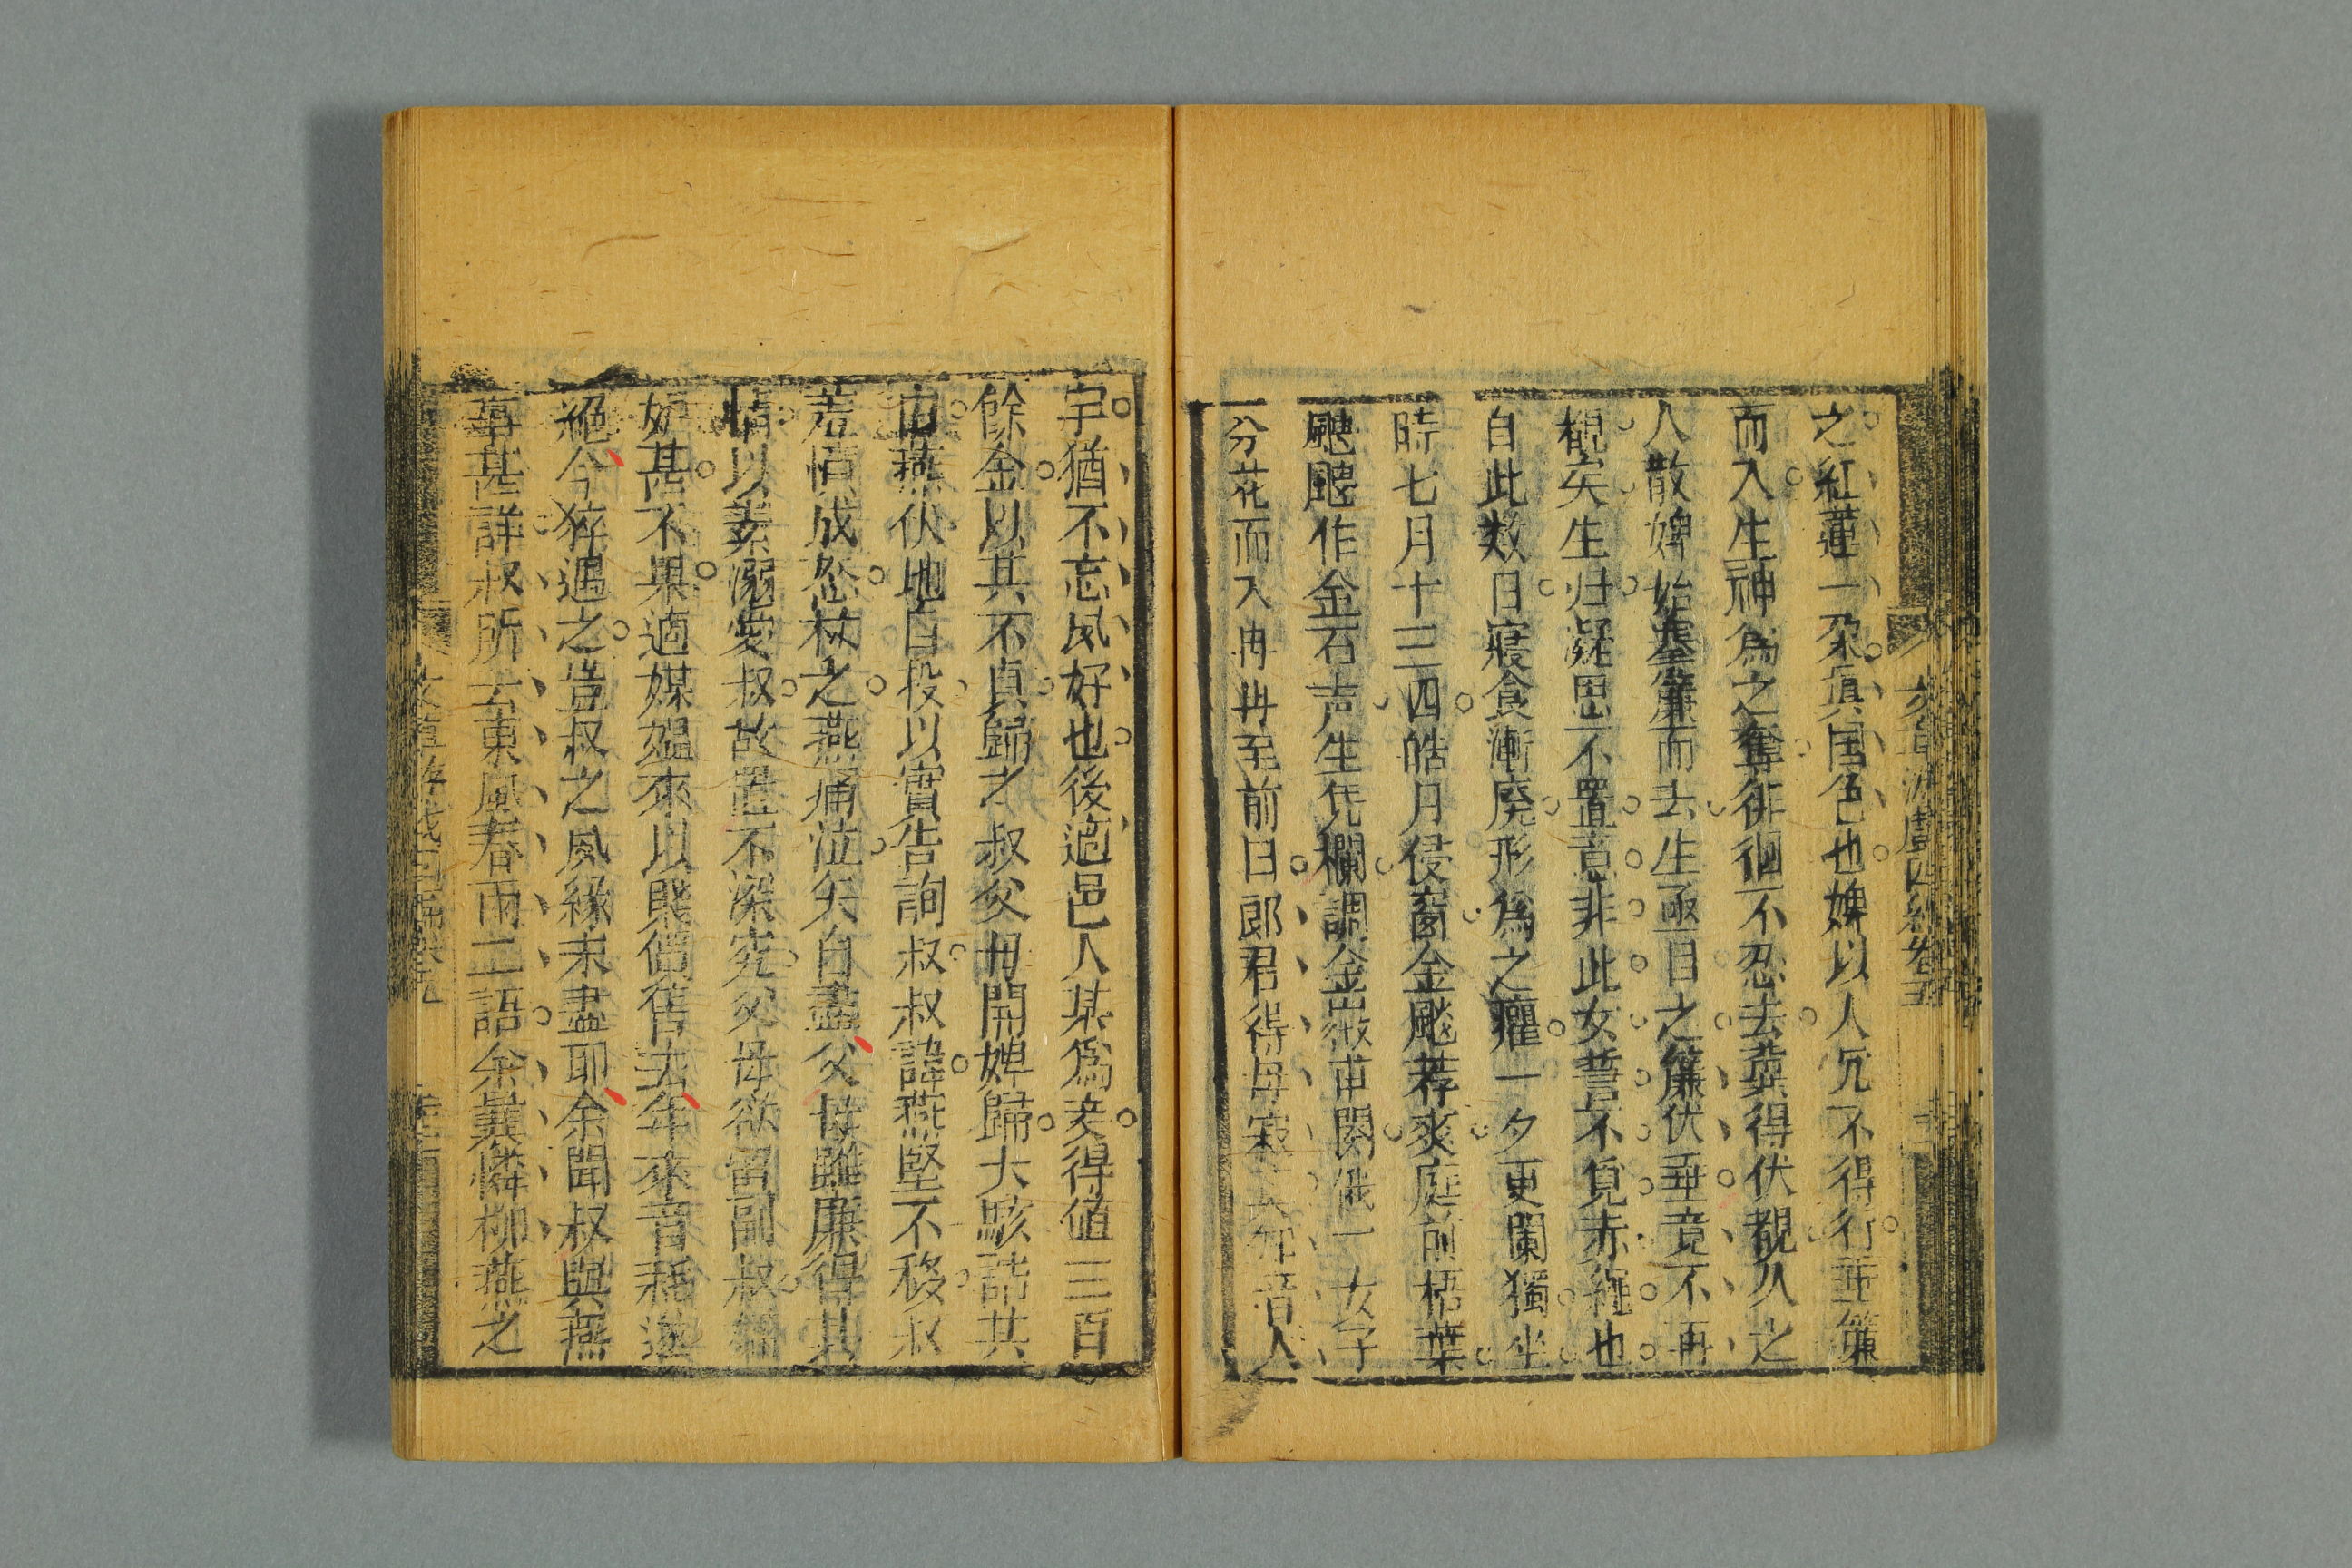 之紅蓮一朶真国色也婢以人冗不得行垂簾
而入生神為之奪徘徊不忍去冀得伏覩久之
人散婢始搴簾而去生亟目之簾伏垂竟不再
覩矣生归凝思不置意非此女誓不覓赤繩也
自此数日寢食漸廃形為之癯一夕更闌獨坐
時七月十三四皓月侵窗金飈荐爽庭前梧葉
颼颼作金石声生凭欄調金徽甫闋俄一女子
分花而入冉冉至前曰郎君得毋寂 知音人
字猶不忘夙好也後適邑人某為妾得値三百
餘金以其不貞歸之叔父毋開婢歸大駭詰其
由燕伏地自投以實告詢叔叔諱燕堅不移叔
羞憤成忿杖之燕痛泣矢自盡父母雖廉得其
情以妾溺愛叔故置不深究父母欲留副叔
妒甚不果適媒媪來以賤價售去年來音耗遂
絕今猝遇之豈叔之夙緣未盡耶余聞叔與燕
事甚詳叔所云東風春雨二語余冀憐柳燕之